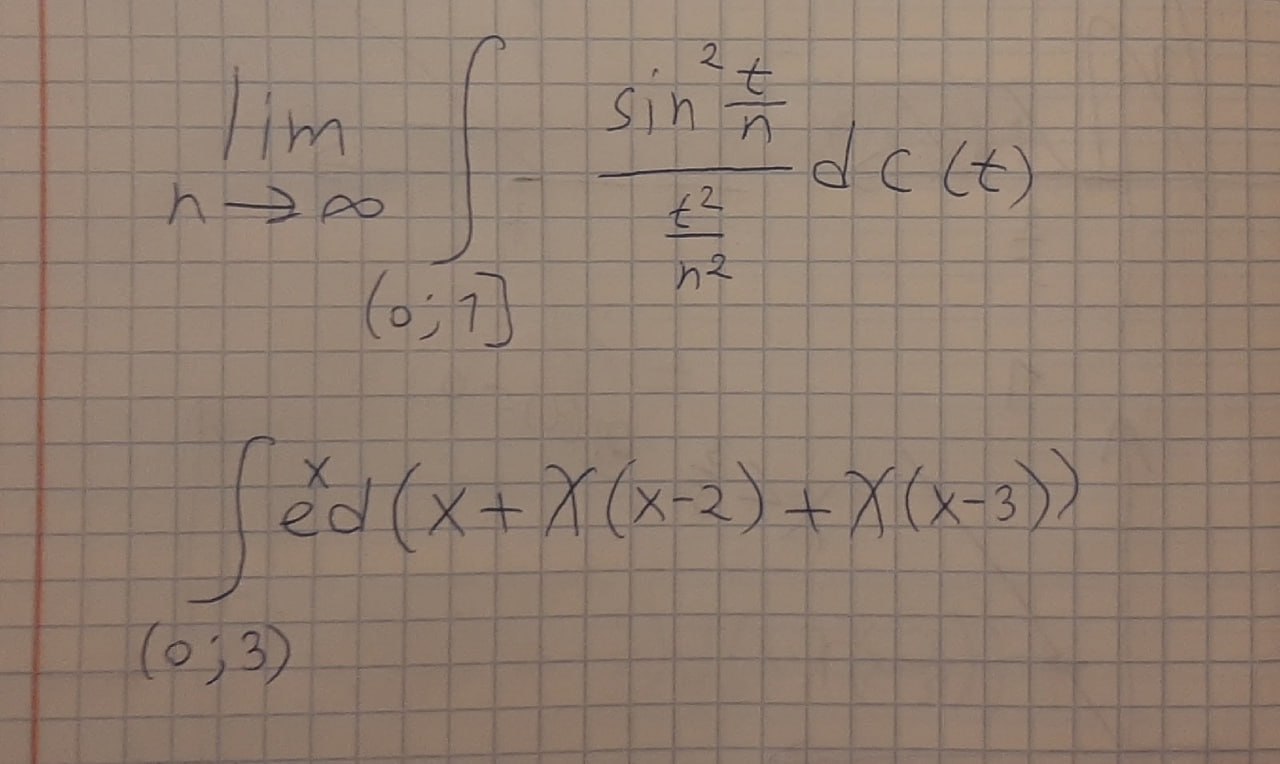 lim n→∞ ∫ (0;1] - sin² t/n / t²/n² d c (t)
∫ (0;3) eˣ d(x + χ(x-2) + χ(x-3))